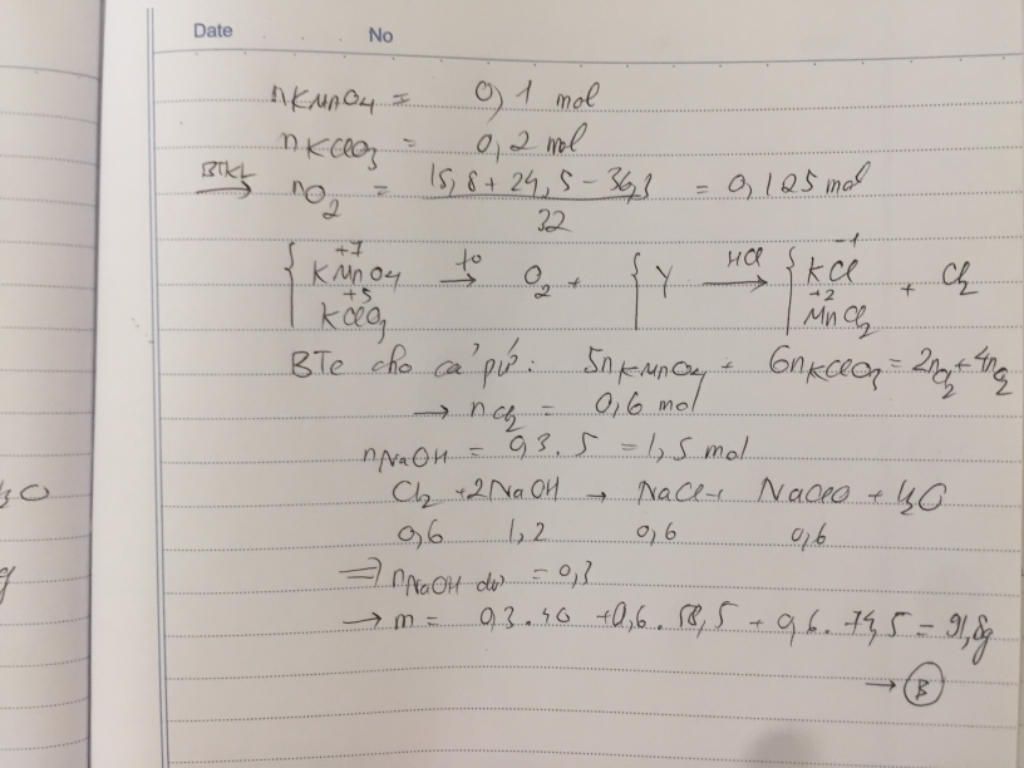 Date No
nKMnO4 = 0,1 mol
nKClO3 = 0,2 mol
BTKL → nO2 = (15,8 + 24,5 - 36,3) / 32 = 0,125 mol
+7 -1
{ KMnO4 t° → O2 + { Y HCl → { KCl + Cl2
+5 +2
KClO3 MnCl2
BTe cho cả pứ: 5nKMnO4 + 6nKClO3 = 2nCl2 + 4nO2
→ nCl2 = 0,6 mol
nNaOH = 0,3.5 = 1,5 mol
Cl2 + 2NaOH → NaCl + NaClO + H2O
0,6 1,2 0,6 0,6
⇒ nNaOH dư = 0,3
→ m = 0,3.40 + 0,6.58,5 + 0,6.74,5 = 91,8g
→ B